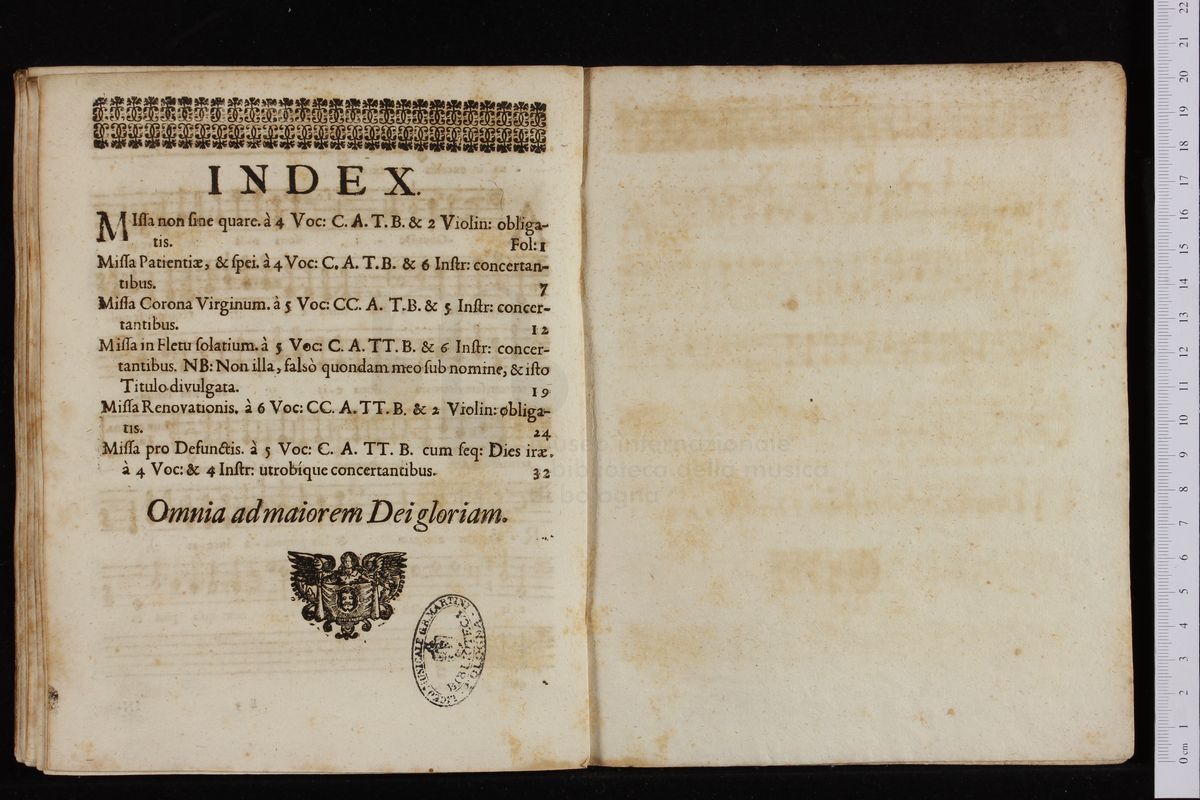 INDEX.
MIſſa non ſine quare. à 4 Voc: C. A. T. B. & 2 Violin: obliga-
tis. Fol: 1
Miſſa Patientiæ, & ſpei. à 4 Voc: C. A. T. B. & 6 Inſtr: concertan-
tibus. 7
Miſſa Corona Virginum. à 5 Voc: CC. A. T. B. & 5 Inſtr: concer-
tantibus. 12
Miſſa in Fletu ſolatium. à 5 Voc: C. A. TT. B. & 6 Inſtr: concer-
tantibus. NB: Non illa, falsò quondam meo ſub nomine, & iſto
Titulo divulgata. 19
Miſſa Renovationis. à 6 Voc: CC. A. TT. B. & 2 Violin: obliga-
tis. 24
Miſſa pro Defunctis. à 5 Voc: C. A. TT. B. cum ſeq: Dies iræ.
à 4 Voc: & 4 Inſtr: utrobíque concertantibus. 32
Omnia ad maiorem Dei gloriam.
museo internazionale
e biblioteca della musica
di bologna